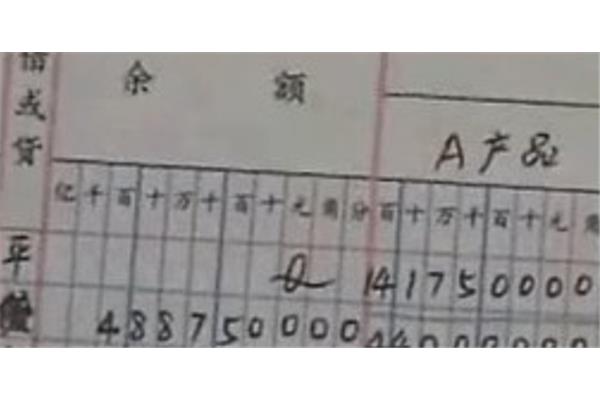 借或贷
余 额
A产品
亿千百十万千百十元角分百十万千百十元角
平 0 141750000
488750000